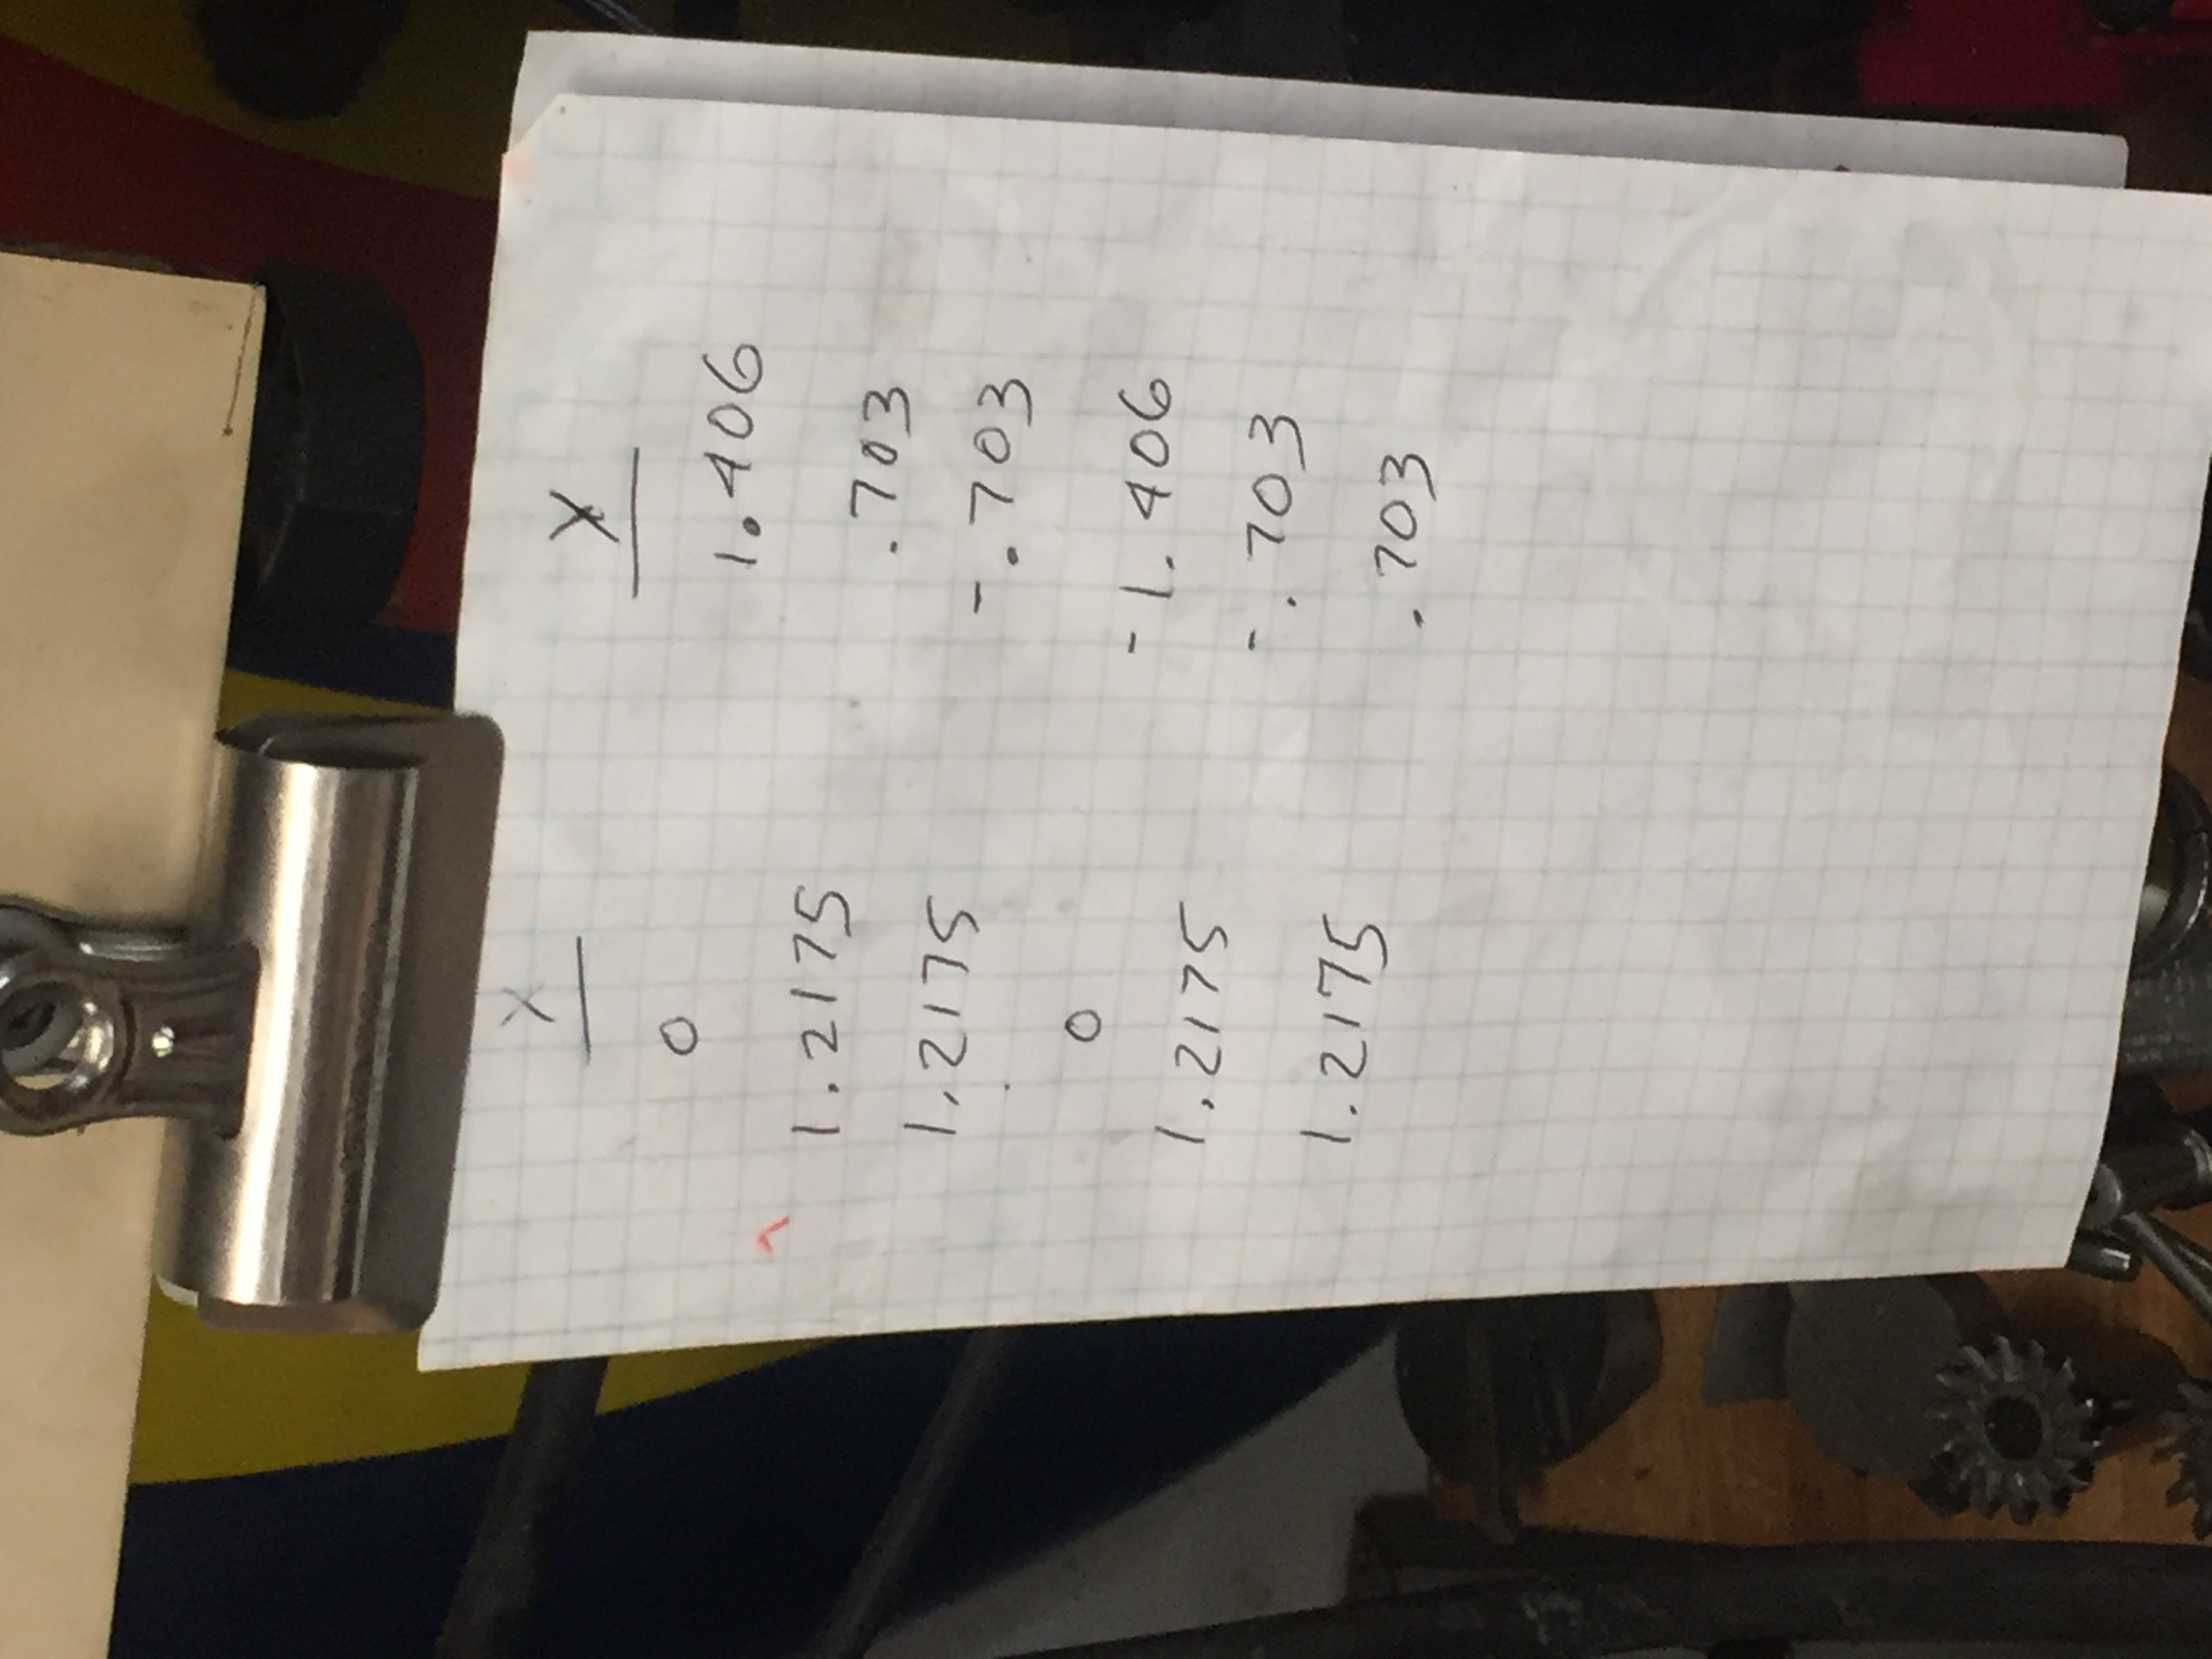 X Y
0 1.406
1.2175 .703
1.2175 -.703
0 -1.406
1.2175 -.703
1.2175 .703